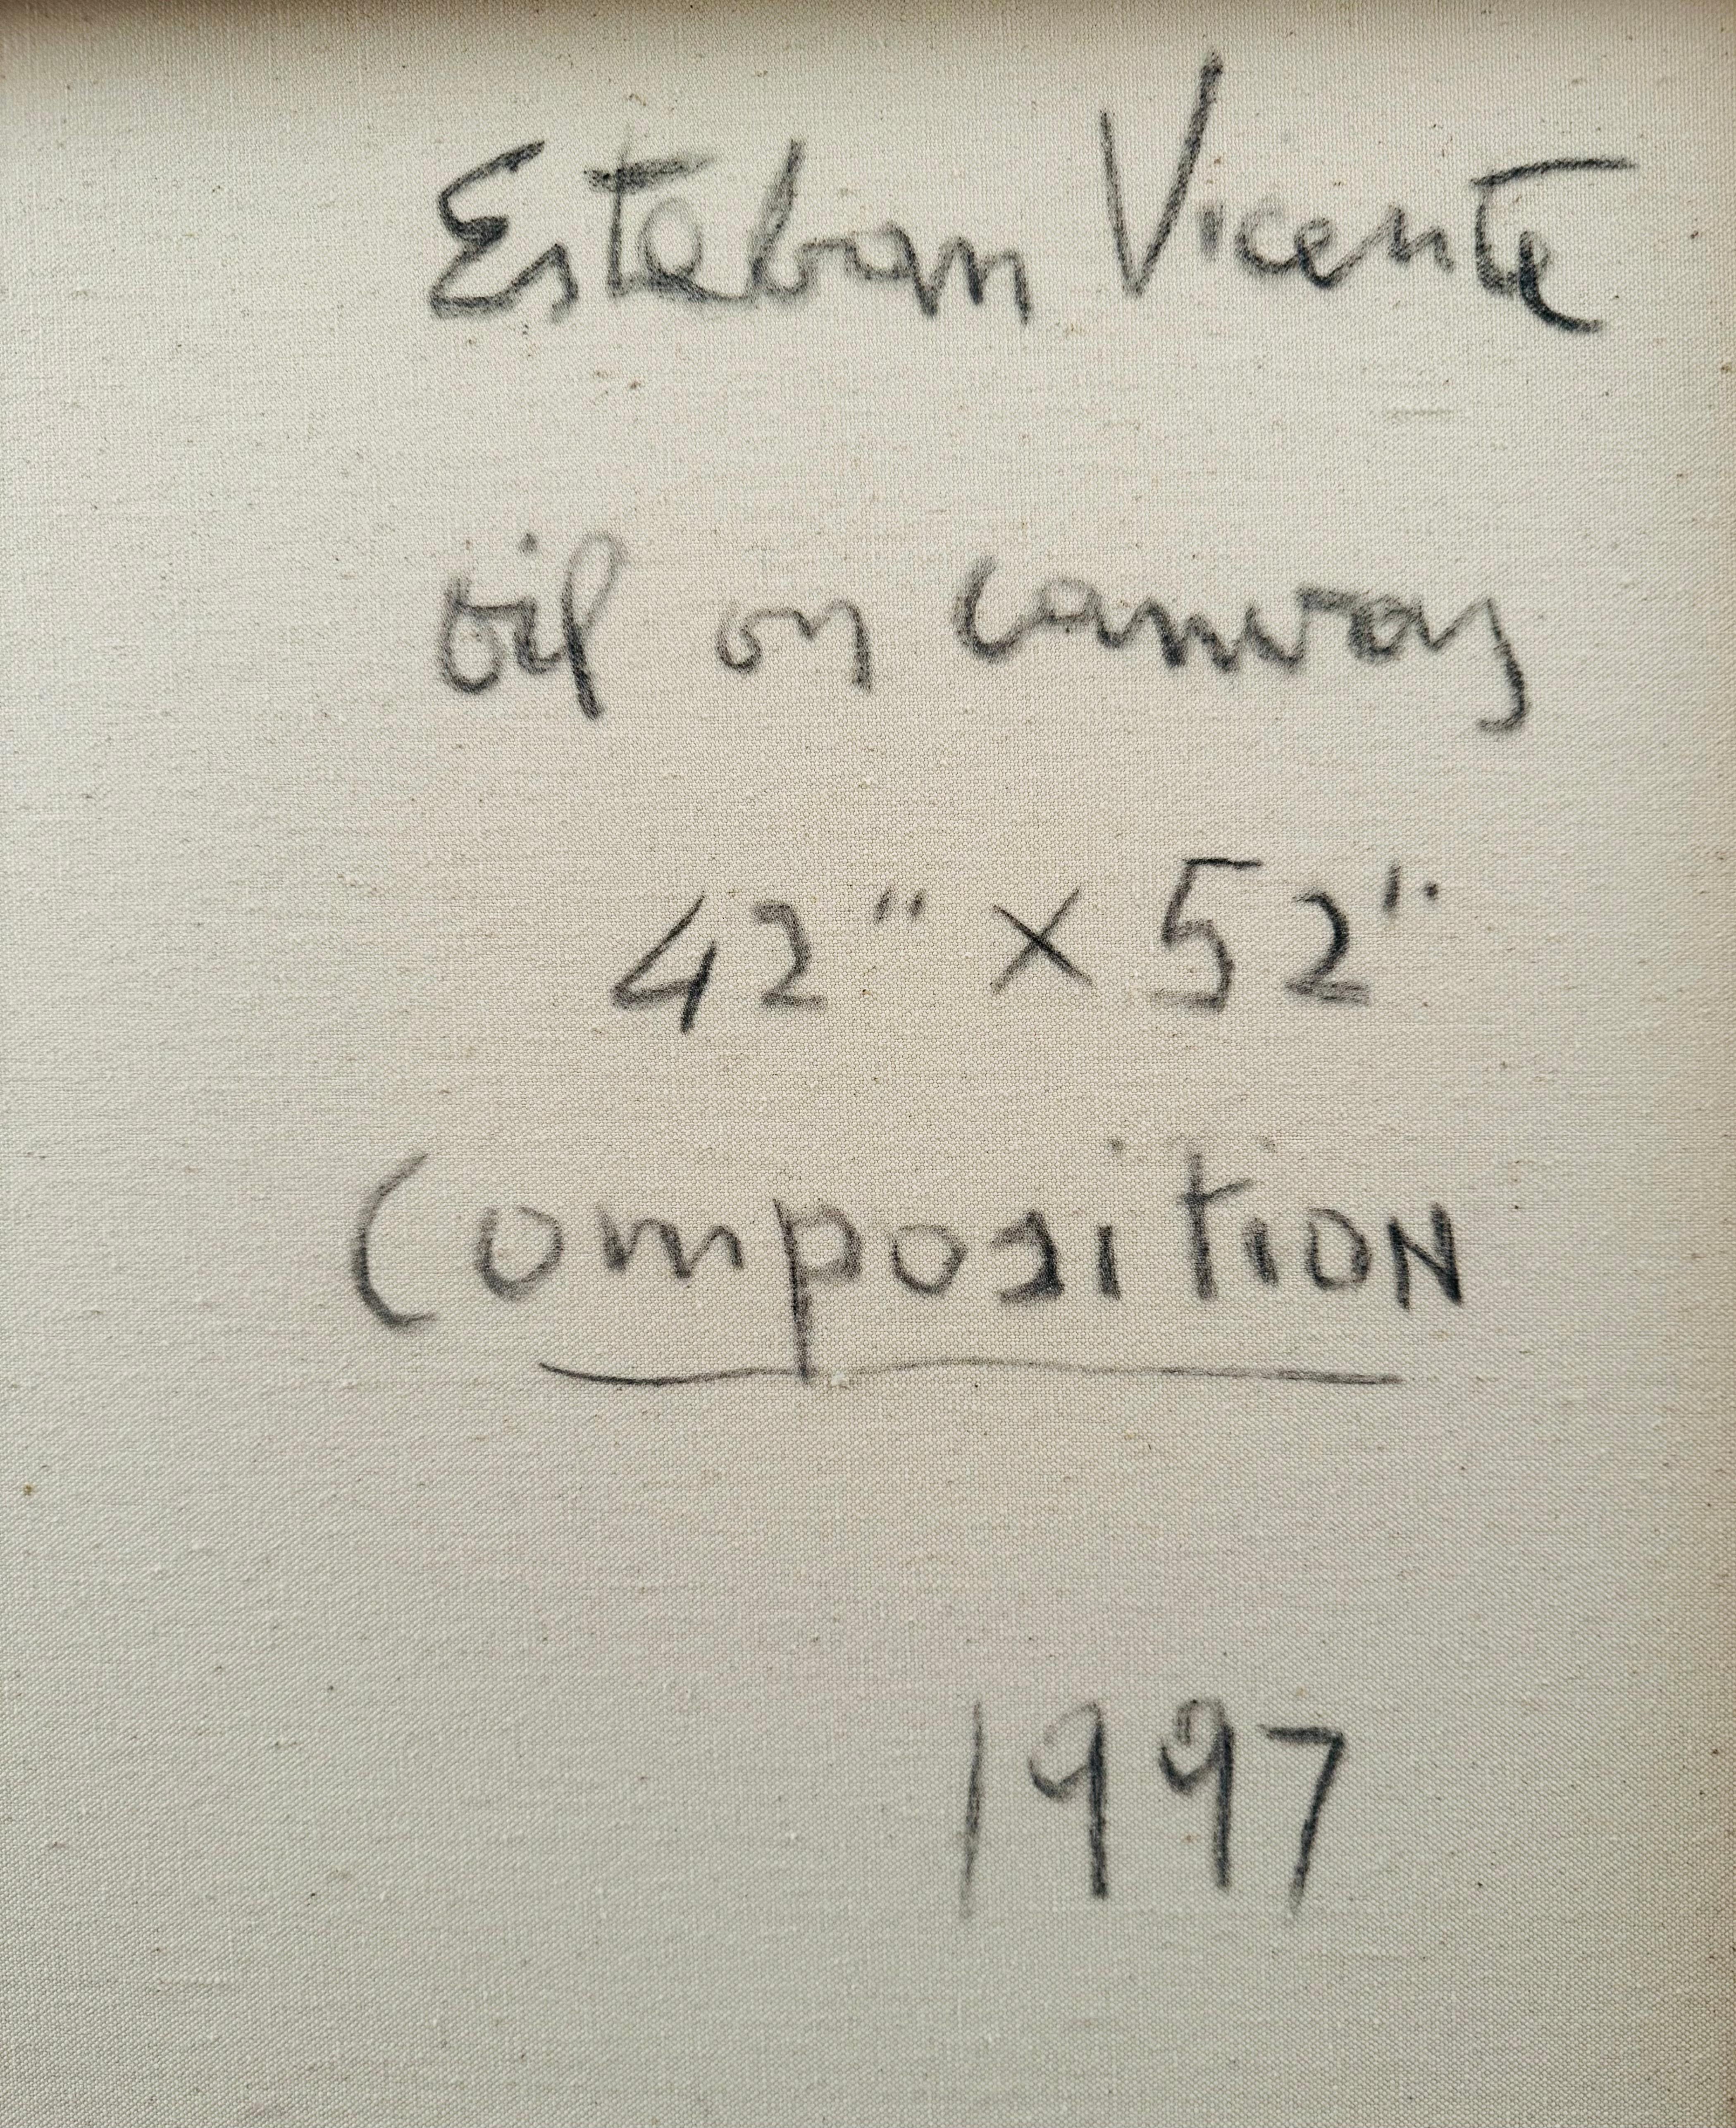 Esteban Vicente
oil on canvas
42" x 52"
Composition
1997